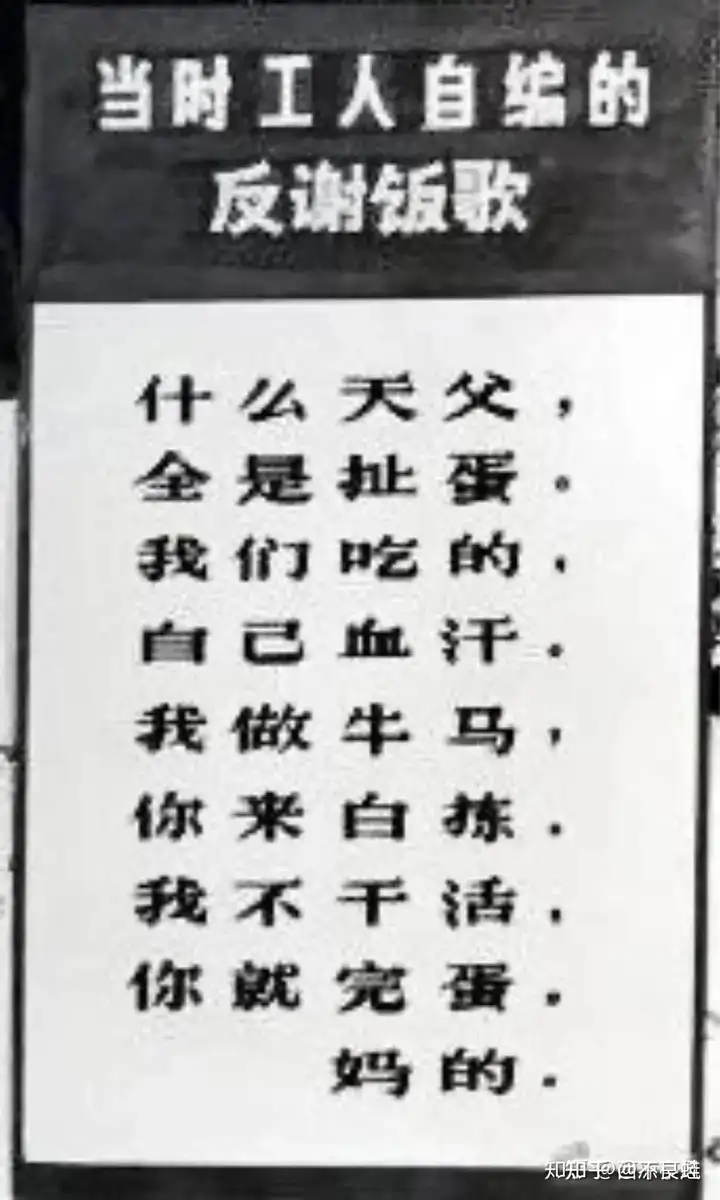 当时工人自编的
反谢饭歌
什么天父，
全是扯蛋。
我们吃的，
自己血汗。
我做牛马，
你来白拣。
我不干活，
你就完蛋，
妈的。
知乎